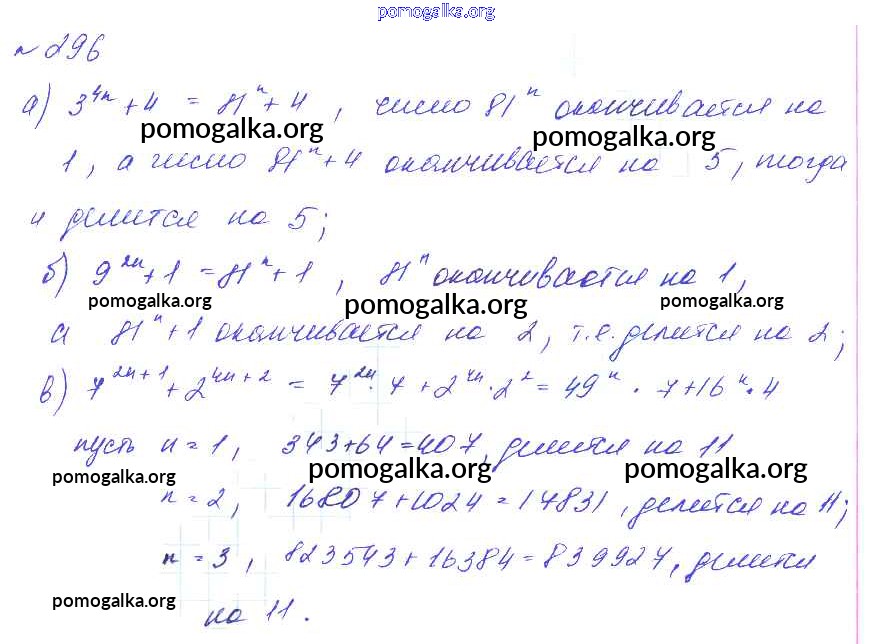 pomogalka.org
№ 296
а) 3^{4n} + 4 = 81^n + 4, число 81^n оканчивается на
pomogalka.org pomogalka.org
1, а число 81^n + 4 оканчивается на 5, тогда
и делится на 5;
б) 9^{2n} + 1 = 81^n + 1, 81^n оканчивается на 1,
pomogalka.org pomogalka.org pomogalka.org
а 81^n + 1 оканчивается на 2, т.е. делится на 2;
в) 7^{2n+1} + 2^{4n+2} = 7^{2n} · 7 + 2^{4n} · 2^2 = 49^n · 7 + 16^n · 4
пусть n = 1, 343 + 64 = 407, делится на 11
pomogalka.org pomogalka.org pomogalka.org
n = 2, 16807 + 1024 = 17831, делится на 11;
n = 3, 823543 + 16384 = 839927, делится
pomogalka.org
на 11.